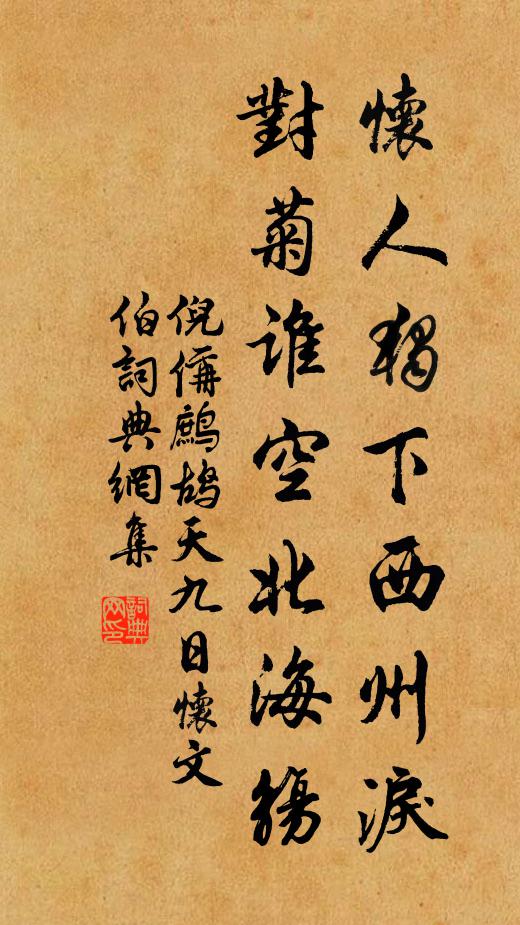 懷人獨下西州淚
對菊誰空北海觴
倪偁鷓鴣天九日懷文
伯詞典網集
詞典網印